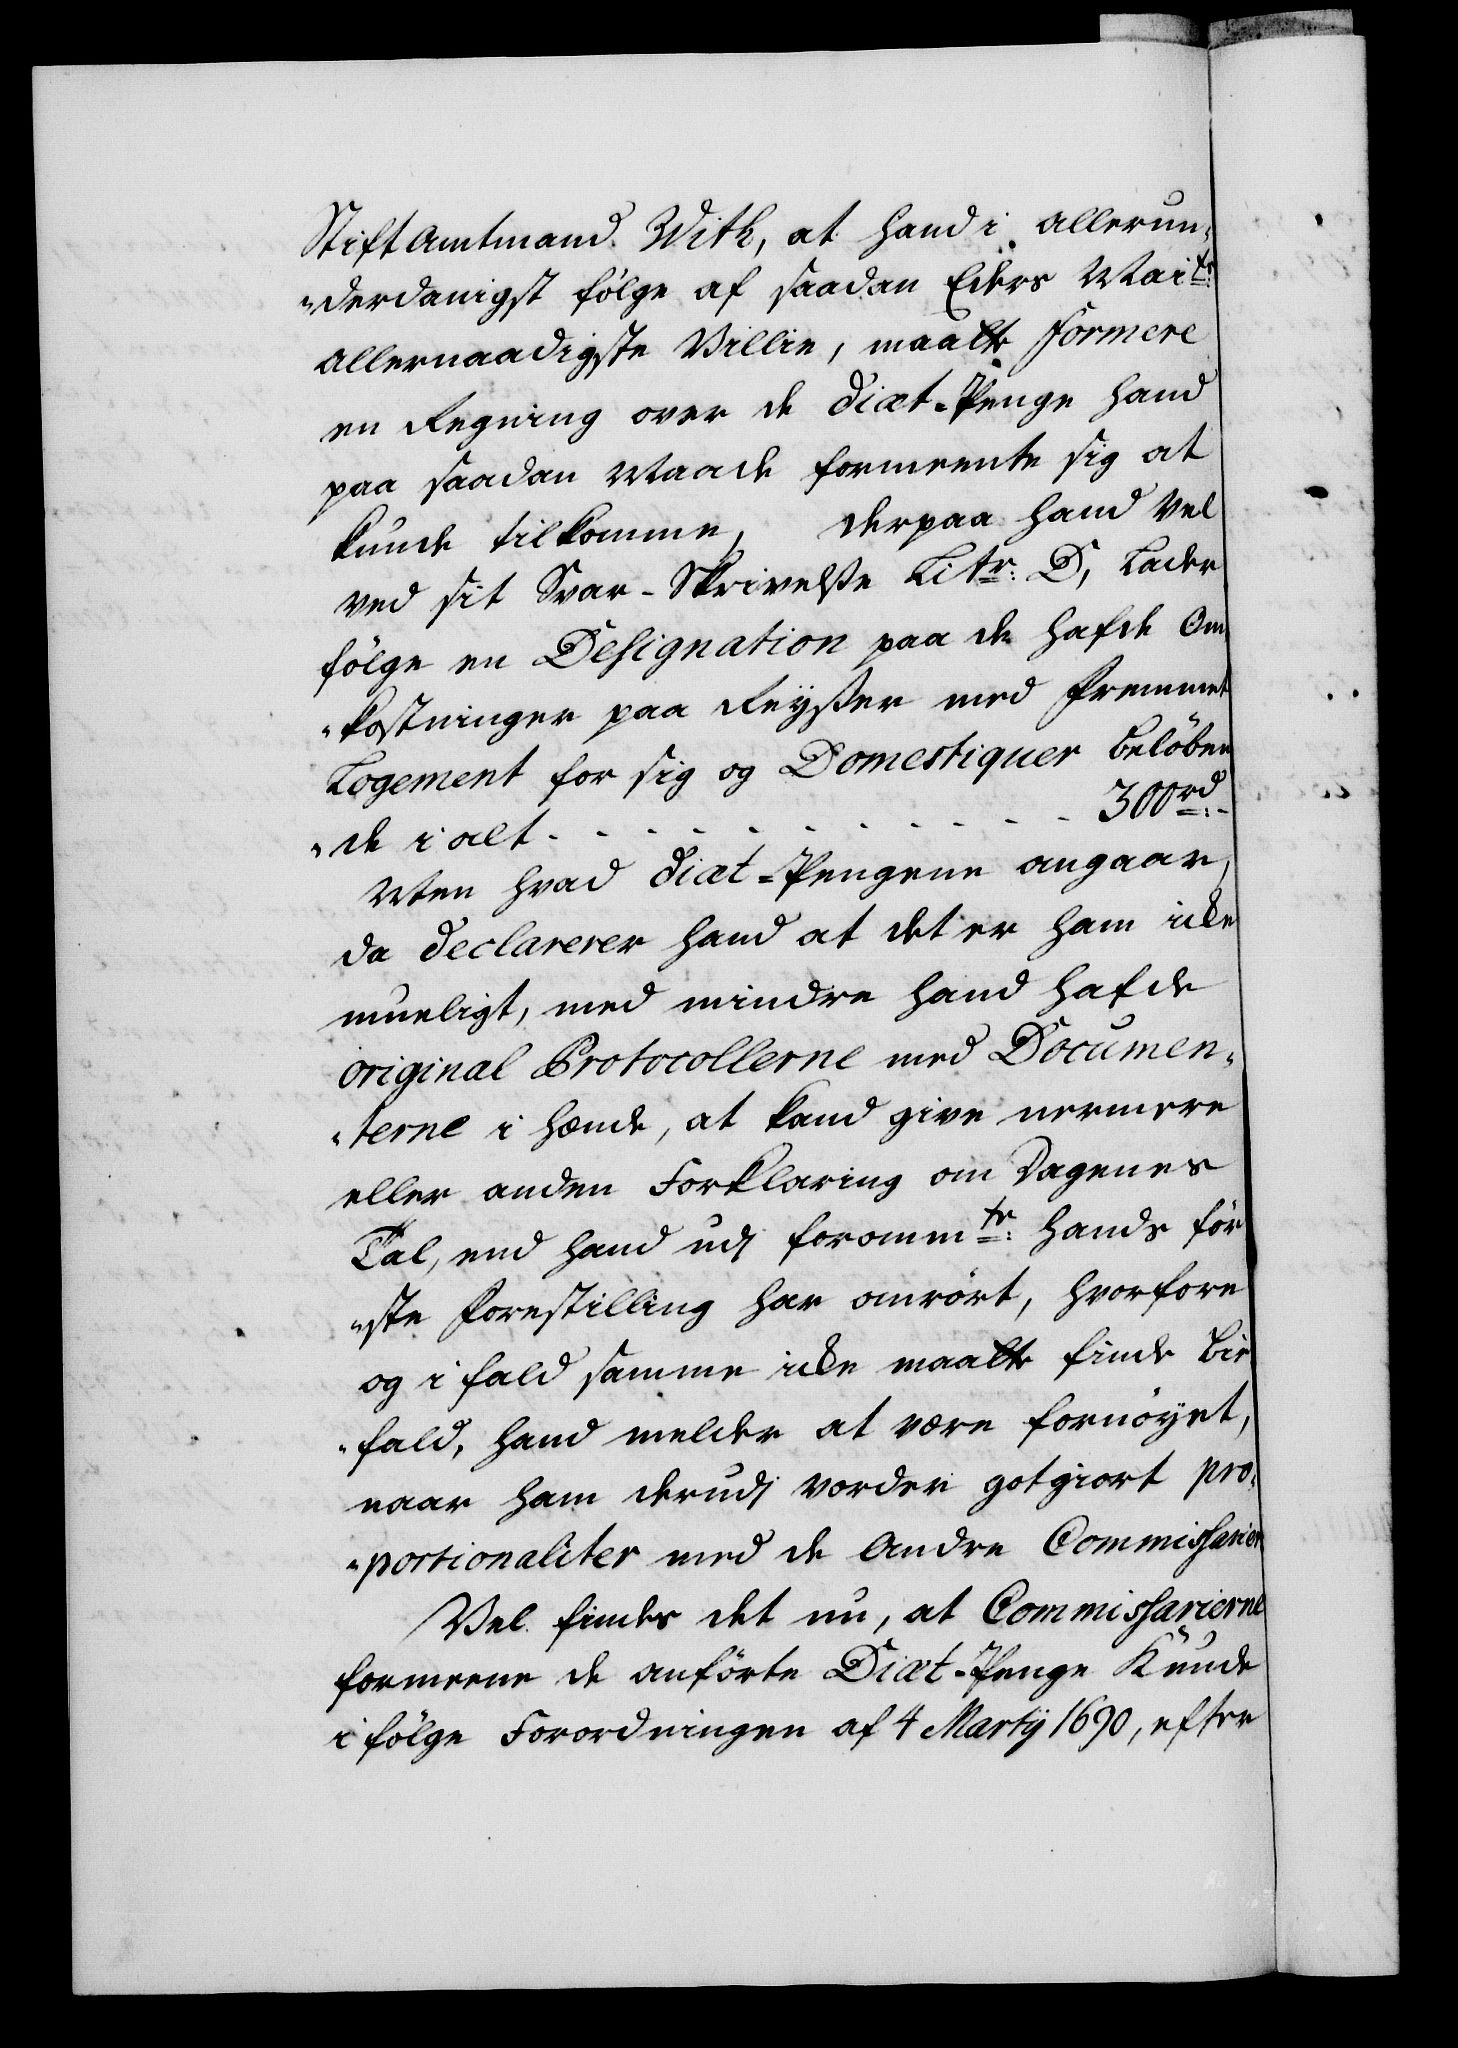 Stift Amtmand With, at hand i allerun„
„derdanigst følge af saadan Eders Maits:
allernaadigste Villie, maatte formere
en Regning over de Diæt-Penge hand
paa saadan Maade formeente sig at
kunde tilkomme, derpaa hand vel
ved sit Svar-Skrivelsse Litr: D, lader
følge en Designation paa de hafde Om
„kostninger paa Reysser med fremmet
Logement for sig og Domestiquer beløben
„de i alt - - - - - - - - - - - 300 rd:-
Men hvad Diæt-Pengene angaar,
da declarerer hand at det er ham icke
mueligt, med mindre hand hafde
original Protocollerne med Documen„
„terne i hænde, at kand give nermere
eller anden Forklaring om Dagenes
Tal, end hand udj forommte: hands før
„ste Forestilling har omrørt, hvorfore
og i fald samme icke maatte finde bie
„fald, hand melder at være fornøyet,
naar ham derudj vorder gotgiort pro„
„portionaliter med de andre Commissarier
Vel findes det nu, at Commissarierne
formeene de anførte Diæt-Penge kunde
i følge Forordningen af 4 Martij 1690, efter